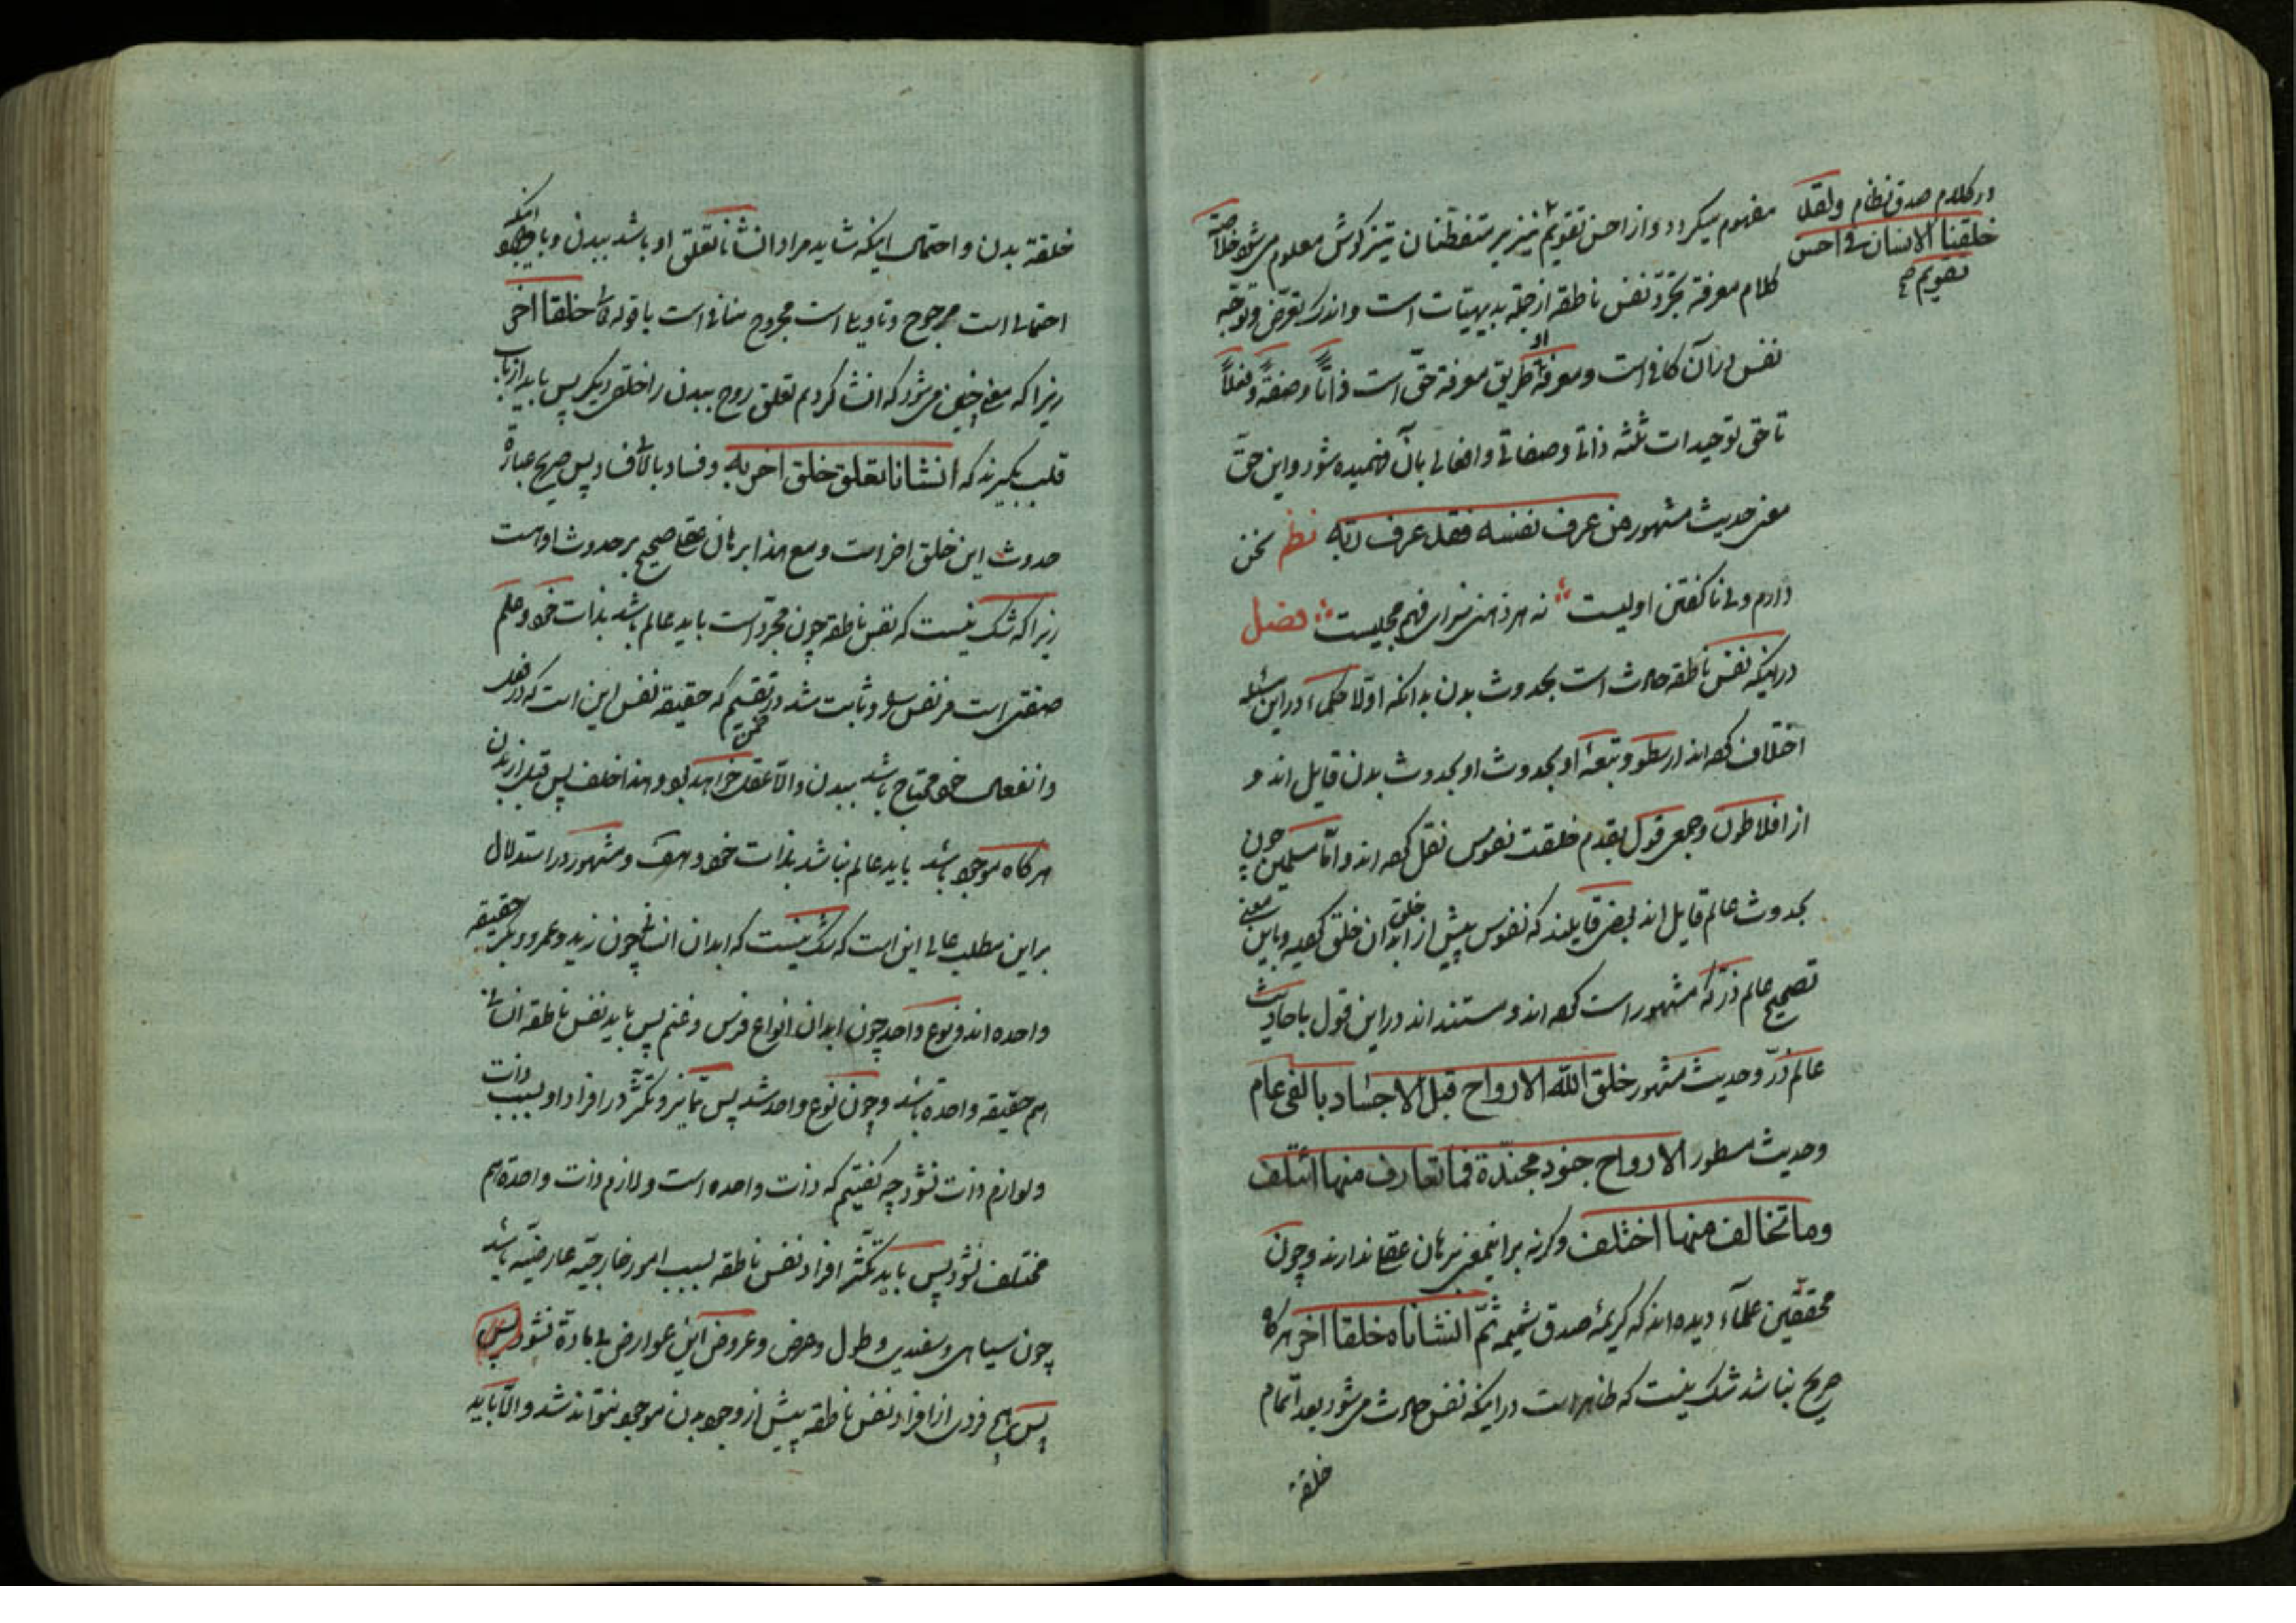 در کلام صدق نظام ولقد
خلقنا الانسان فی احسن
تقویم صح
مفهوم میگردد و از احسن تقویم نیز بر متفطنان تیزکوش معلوم میشود خلاصة
کلام معرفة تجرّد نفس ناطقه از جمله بدیهیّات است و اندک تعرّض و توجّه
نفس در آن کافی است و معرفة او طریق معرفة حقّ است ذاتاً و صفةً و فعلاً
تا حقّ توحیدات ثلثه ذاتی و صفاتی و افعالی بآن فهمیده شود و این حقّ
معنی حدیث مشهور من عرف نفسه فقد عرف ربّه نظم سخن
دارم ولی ناکفتن اولیست نه هر ذهنی سزای فهم مجلیست فصل
در اینکه نفس ناطقه حادث است بحدوث بدن بدانکه اوّلا حکماء در این مسئله
اختلاف کرده‌اند ارسطو و تبعهٔ او بحدوث او بحدوث بدن قایل اند و
از افلاطون و جمعی قول بقدم خلقت نفوس نقل کرده اند و امّا مسلمین چون
بحدوث عالم قایل اند بعضی قایلند که نفوس پیش از خلق ابدان خلق کردیده و باین معنی
تصحیح عالم ذرّ که مشهور است کرده اند و مستند اند در این قول باحادیث
عالم ذرّ و حدیث مشهور خلق اللّه الارواح قبل الاجساد بالفی عام
وحدیث مسطور الارواح جنود مجنّدة فما تعارف منها ائتلف
وما تخالف منها اختلف وکرنه بر اینمعنی برهان عقلی ندارند و چون
محقّقین علمآء دیده اند که کریمهٔ صدق شمیمه ثمّ انشاناه خلقا اخر هرکاه
صریح نباشد شک نیست که ظاهر است در اینکه نفس حادث میشود بعد اتمام
خلقة
خلقة بدن و احتمال اینکه شاید مراد انشانا تعلق او باشد ببدن و با اینکه
احتمالی است مرجوح و تاویلی است مجروح منافی است با قوله تعالی خلقا اخر
زیرا که معنی چنین میشود که انشا کردیم تعلق روح ببدن را خلقی دیکر پس باید از باب
قلب بکیرند که انشانا تعلق خلق اخر به و فساد بالای فساد پس صریح عبارة
حدوث این خلق اخر است و مع هذا برهان عقلی صحیح بر حدوث او هست
زیرا که شک نیست که نفس ناطقه چون مجرّد است باید عالم باشد بذات خود و علم
صفتی است مر نفس را و ثابت شد در تقسیم که حقیقة نفس این است که در فعل
وانفعال خود محتاج باشد ببدن والّا عقل خواهد بود و هذا خلف پس قبل از بدن
هرکاه موجود باشد باید عالم نباشد بذات خود و مشهور در استدلال
بر این مطلب عالی این است که شک نیست که ابدان انسانی چون زید و عمرو و بکر حقیقة
واحده اند و نوع واحد چون ابدان انواع فرس و غنم پس باید نفس ناطقه انسانی
هم حقیقه واحدة باشد و چون نوع واحد شد پس تمایز و تکثّر در افراد او بسبب ذات
و لوازم ذات نشود چه کفتیم که ذات واحده است و لازم ذات واحدة هم
مختلف نشود پس باید تکثّر افراد نفس ناطقه بسبب امور خارجیّه عارضیّه باشد
چون سیاهی و سفیدی و طول و عرض و عروض این عوارض بی مادة نشود پس
پس هیچ فردی از افراد نفس ناطقه پیش از وجود بدن موجود نتواند شد و الّا باید